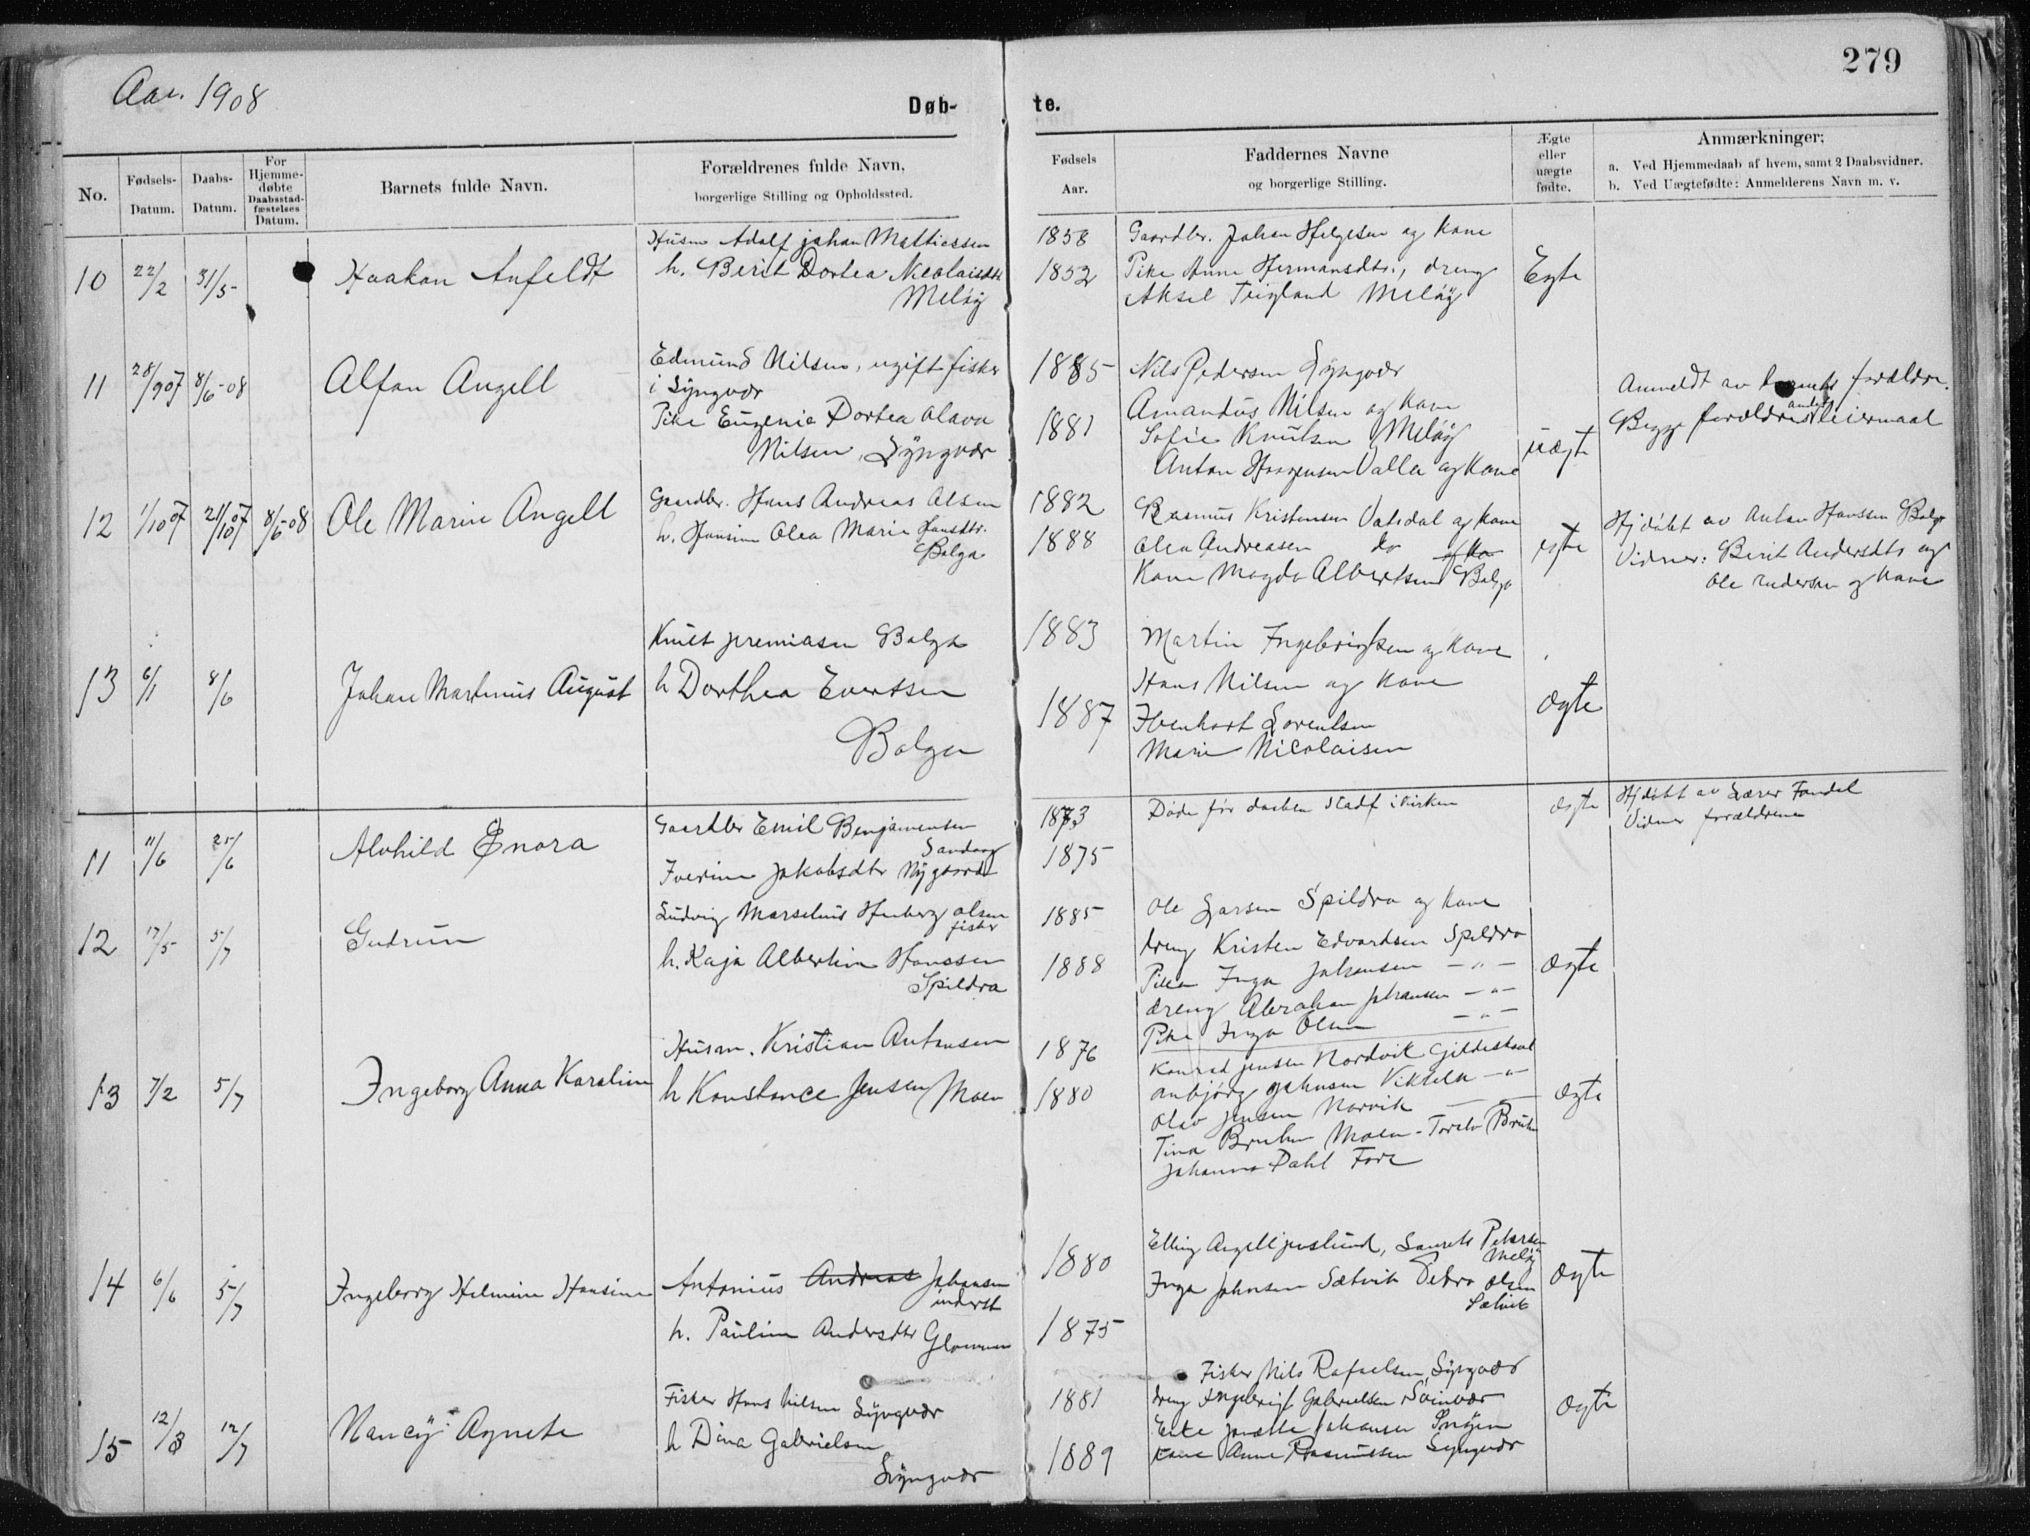 Aar. 1908
Døb-
te.
279
No.
Fødsels-
Datum.
Daabs-
Datum.
For
Hjemme-
døbte
Daabsstad-
fæstelses
Datum.
Barnets fulde Navn.
Forældrenes fulde Navn,
borgerlige Stilling og Opholdssted.
Fødsels
Aar.
Faddernes Navne
og borgerlige Stilling.
Ægte
eller
uægte
fødte.
Anmærkninger;
a. Ved Hjemmedaab af hvem, samt 2 Daabsvidner.
b. Ved Uægtefødte: Anmelderens Navn m. v.
10 22/2 31/5 Haakon Anfeldt
Husm Adolf Johan Mathiessen
h. Berit Dortea Nicolaisdtr
Meløy
1858
1852
Gaardbr. Johan Helgesen og Kone
Pike Anne Hermansdtr., dreng
Aksel Teigland Meløy
Egte
11 28/9 07 8/6-08 Alfon Angell
Edmund Nilsen, ugift fisker
i Syngvær
Pike Eugenie Dortea Olava
Nilsen, Syngvær
1885
1881
Nils Pedersen Syngvær
Amandus Nilsen og Kone
Sofie Knutsen Meløy
Anton Haagensen Valla og Kone
uægte
Anmeldt av barnets forældre.
Begge forældres andet leiermaal
12 1/10 07 21/10 07 8/6-08 Ole Marin Angell
Gaardbr. Hans Andreas Olsen
h. Hansine Olea Marie Hansdtr.
Bolga
1882
1888
Rasmus Kristensen Valsdal og Kone
Olea Andreasen do
Kone Magda Albertsen Bolga
egte
Hjdøbt av Anton Hanssen Bolga
Vidner: Berit Andersdtr og
Ole Andersen og Kone
13 6/1 8/6 Johan Martinus August
Knut Jeremiasen Bolga
h Dorthea Evertsen
Bolga
1883
1887
Martin Ingebrigtsen og Kone
Hans Nilsen og Kone
Ibenhart Lorentsen
Marie Nicolaisen
ægte
11 11/6 25/6 Alvhild Enora
Gaardbr Emil Benjamensen
Sandvag
Iverine Jakobsdtr Nygaard
1873
1875
Døde før daaben stadf i kirken
ægte
Hjdøbt av Lærer Fondal
Vidner forældrene
12 17/5 5/7 Gudrun
Ludvig Marselius Henberg Olsen
fisker
h. Kaja Albertine Hanssen
Spildra
1885
1888
Ole Larsen Spildra og Kone
dreng Kristen Edvardsen Spildra
Piken Inga Johansen - " -
dreng Abraham Johansen - " -
Pike Inga Olsen - " -
ægte
13 7/2 5/7 Ingeborg Anna Karoline
Husm. Kristian Antonsen
h Konstance Jensen Moen
1876
1880
Konrad Jensen Nordvik Gildeskaal
Anbjørg Johnsen - " -
Olav Jensen Norvik
Tina Bruhn Moen - Bruhn
Johanna Dahl Fore
ægte
14 6/6 5/7 Ingeborg Helmine Hansine
Antonius Andreas Johansen
inderst
h. Pauline Andersdtr Glommen
1880
1875
Elling Angell, Laurits Petersen
Meløy
Inga Johnsen Sætvik Petra Olsen
Sætvik
ægte
15 12/3 12/7 Nancy Agnete
Fisker Hans Nilsen Syngvær
h Dina Gabrielsen
Syngvær
1881
1889
Fisker Nils Rafaelsen, Syngvær
dreng Ingebrigt Gabrielsen Svinvær
Enke Janette Johansen
Kone Anne Rasmussen Syngvær
ægte